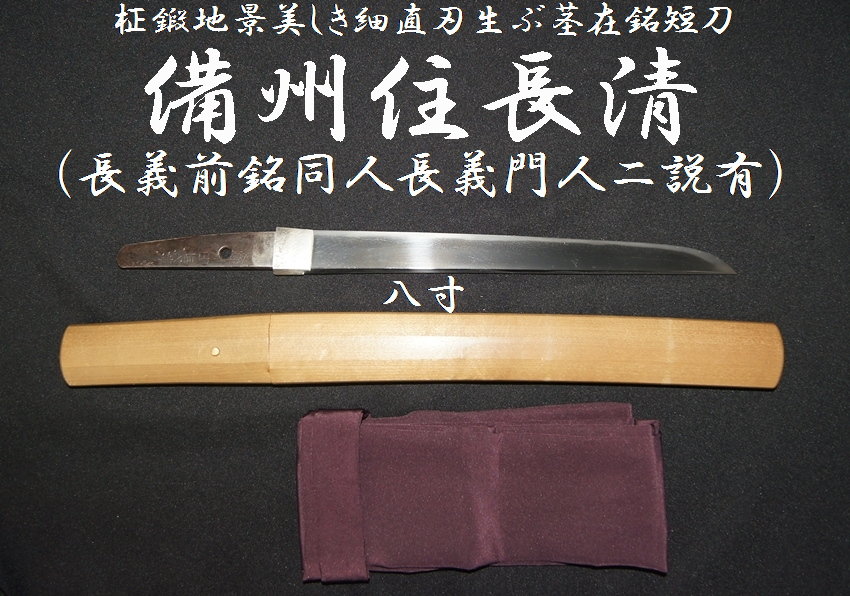 柾鍛地景美しき細直刃生ぶ茎在銘短刀
備州住長清
(長義前銘同人長義門人二説有)
八寸